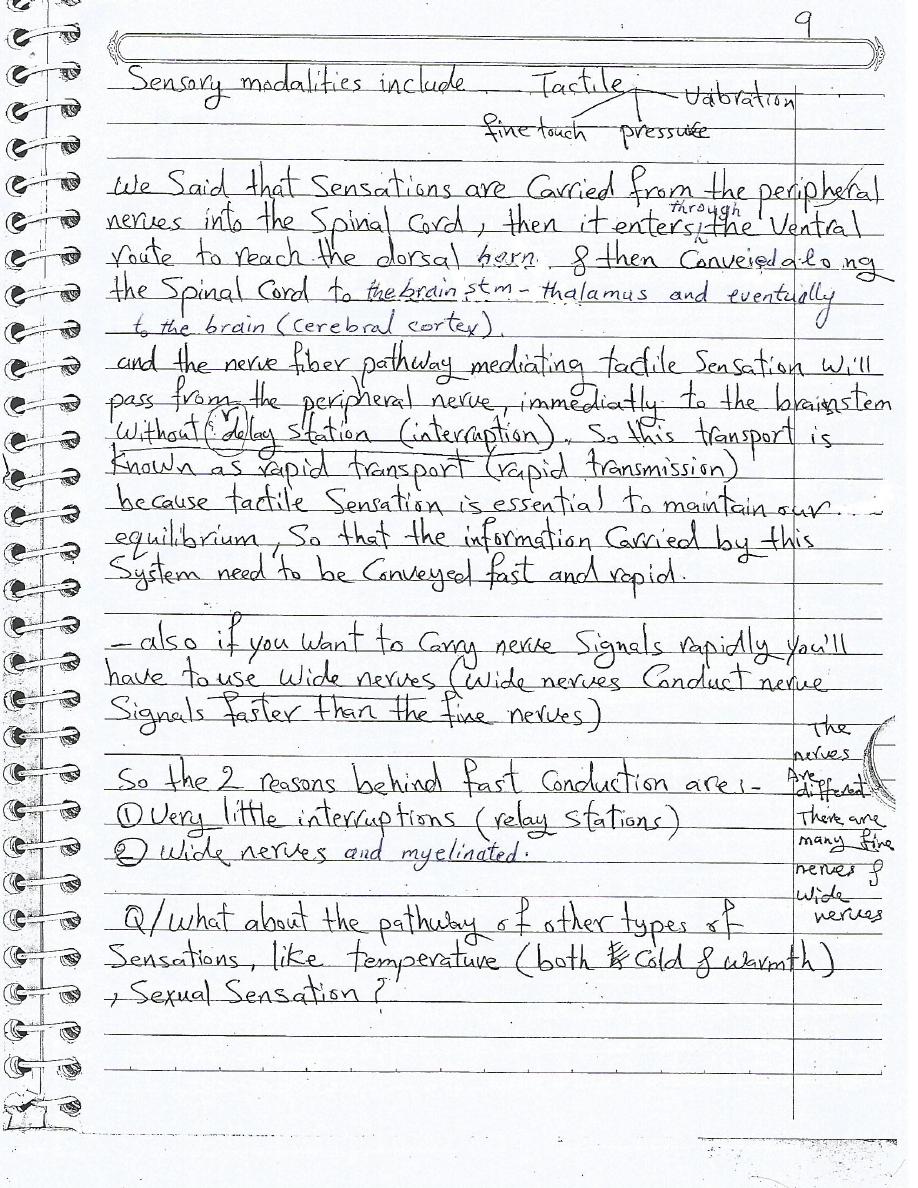 9
Sensory modalities include Tactile
Vaibration
fine touch pressure
We Said that Sensations are Carried from the peripheral
nerves into the Spinal Cord, then it enters through the Ventral
route to reach the dorsal horn & then Conveied along
the Spinal Cord to the brain stm - thalamus and eventually
to the brain (cerebral cortex).
and the nerve fiber pathway mediating tactile Sensation will
pass from the peripheral nerve, immediatly to the brainstem
without relay station (interruption). So this transport is
known as rapid transport (rapid transmission)
because tactile Sensation is essential to maintain our ...
equilibrium, So that the information Carried by this
System need to be Conveyed fast and rapid.
- also if you want to Carry nerve Signals rapidly you'll
have to use wide nerves (wide nerves Conduct nerve
Signals faster than the fine nerves)
So the 2 reasons behind fast Conduction are:-
① Very little interruptions (relay stations)
② wide nerves and myelinated.
The
nerves
Are
different
There are
many fine
nerves &
wide
nerves
Q/What about the pathway of other types of
Sensations, like temperature (both Cold & warmth)
, Sexual Sensation?